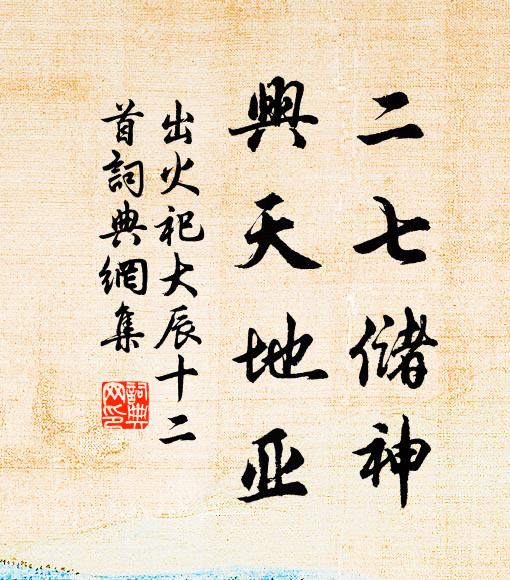 二七儲神
興天地亚
出火祀大辰十二
首詞典網集
詞典
网印